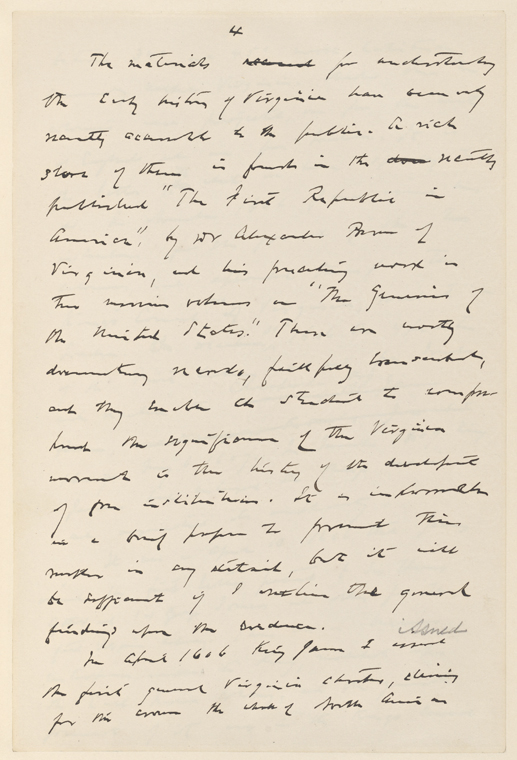 4
The materials for understanding
the early history of Virginia have been only
recently accessible to the public. A rich
store of them is found in the recently
published "The First Republic in
America", by Mr Alexander Brown of
Virginia, and his preceding work in
two massive volumes on "The Genesis of
the United States." These are mostly
documentary records, faithfully transcribed,
and they enable the student to compre
hend the significance of the Virginia
movement in the history of the development
of free institutions. It is impossible
in a brief paper to present this
matter in any detail, but it will
be sufficient if I outline the general
findings upon the evidence.
issued
In April 1606 King James I issued
the first general Virginia charter, claiming
for the crown the whole of North America